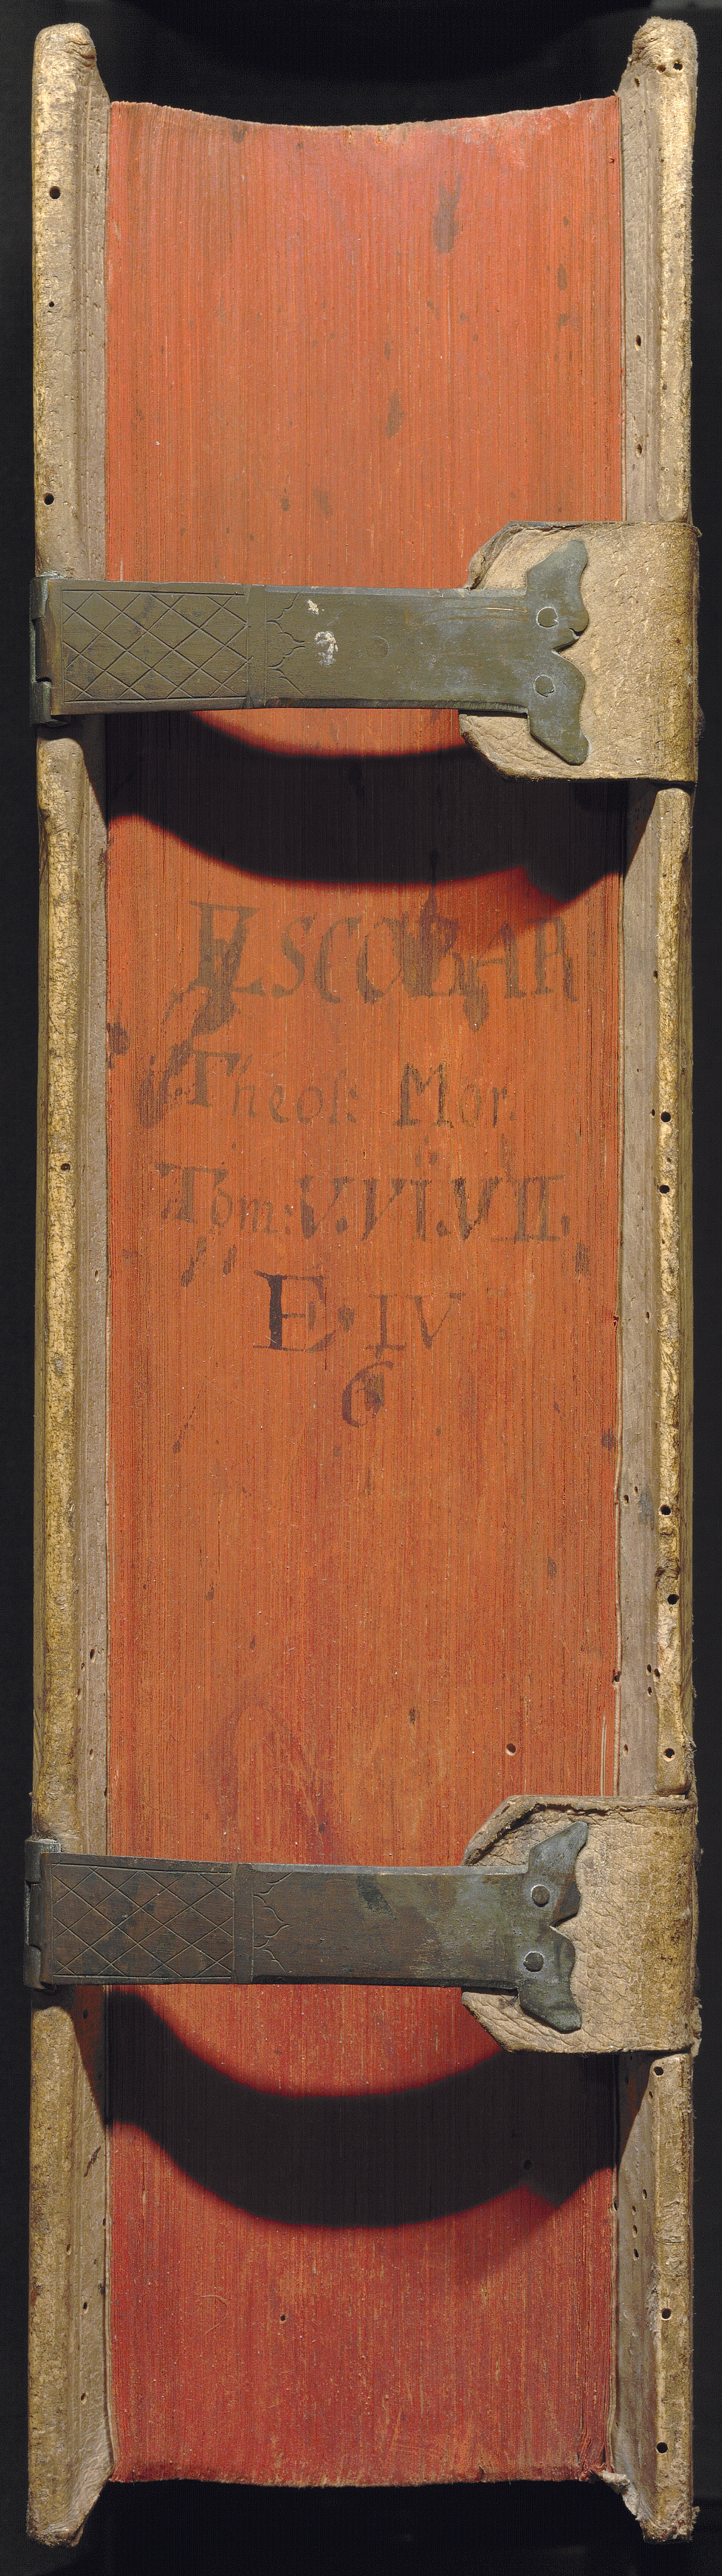 ESCOBAR
Theol: Mor.
Tom: V. VI. VII.
E · IV
6